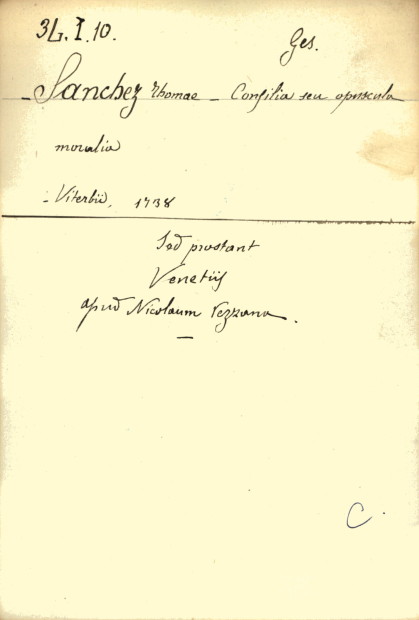 34. I. 10.
Ges.
Sanchez Thomae - Consilia seu opuscula
moralia
- Viterbii, 1738
Sed prostant
Venetiis
apud Nicolaum Pezzana.
C.